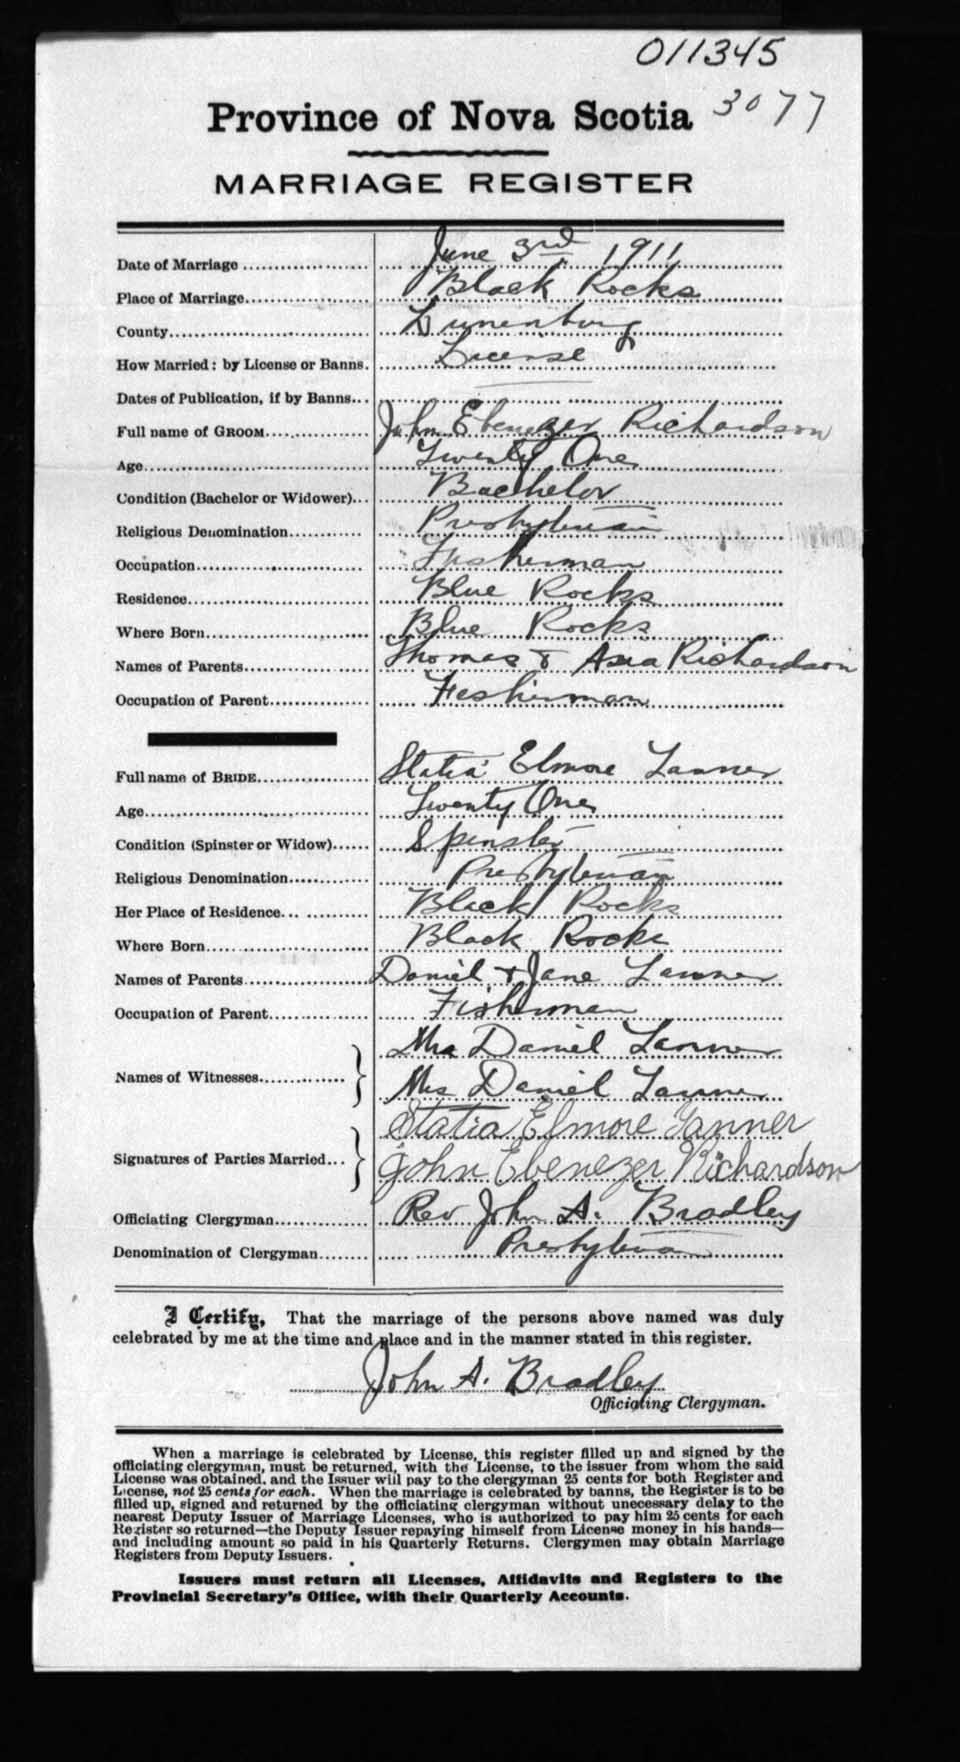 011345
Province of Nova Scotia 3077
MARRIAGE REGISTER
Date of Marriage June 3rd 1911
Place of Marriage Black Rocks
County Lunenburg
How Married: by License or Banns. License
Dates of Publication, if by Banns
Full name of GROOM John Ebenezer Richardson
Age Twenty One
Condition (Bachelor or Widower) Bachelor
Religious Denomination Presbyterian
Occupation Fisherman
Residence Blue Rocks
Where Born Blue Rocks
Names of Parents Thomas & Asia Richardson
Occupation of Parent Fisherman
Full name of BRIDE Statia Elmore Tanner
Age Twenty One
Condition (Spinster or Widow) Spinster
Religious Denomination Presbyterian
Her Place of Residence Black Rocks
Where Born Black Rocks
Names of Parents Daniel & Jane Tanner
Occupation of Parent Fisherman
Mrs Daniel Tanner
Names of Witnesses
Mrs Daniel Tanner
Statia Elmore Tanner
Signatures of Parties Married
John Ebenezer Richardson
Officiating Clergyman Rev John A. Bradley
Denomination of Clergyman Presbyterian
I Certify, That the marriage of the persons above named was duly
celebrated by me at the time and place and in the manner stated in this register.
John A. Bradley
Officiating Clergyman.
When a marriage is celebrated by License, this register filled up and signed by the
officiating clergyman, must be returned, with the License, to the issuer from whom the said
License was obtained, and the Issuer will pay to the clergyman 25 cents for both Register and
License, not 25 cents for each. When the marriage is celebrated by banns, the Register is to be
filled up, signed and returned by the officiating clergyman without unecessary delay to the
nearest Deputy Issuer of Marriage Licenses, who is authorized to pay him 25 cents for each
Register so returned—the Deputy Issuer repaying himself from License money in his hands—
and including amount so paid in his Quarterly Returns. Clergymen may obtain Marriage
Registers from Deputy Issuers.
Issuers must return all Licenses, Affidavits and Registers to the
Provincial Secretary's Office, with their Quarterly Accounts.